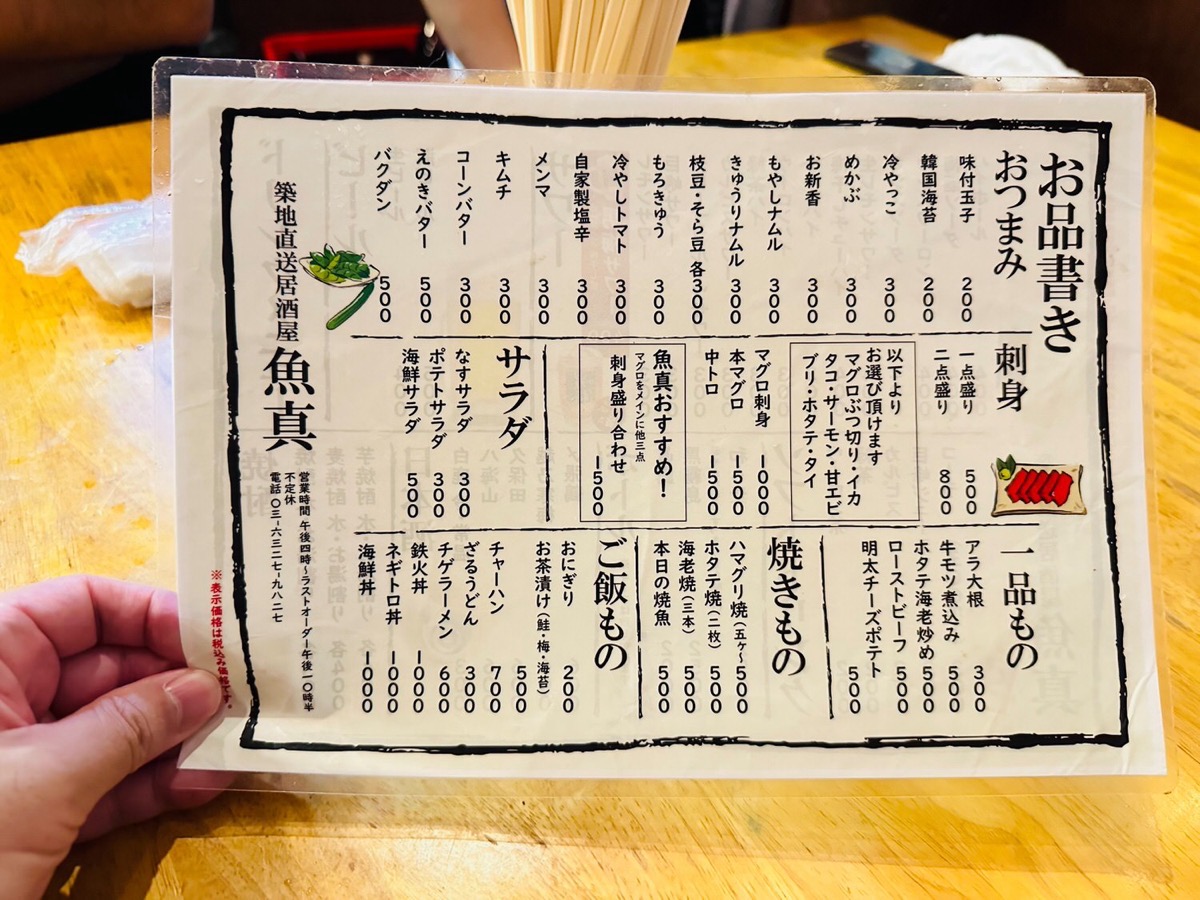 お品書き
おつまみ
味付玉子 200
韓国海苔 200
冷やっこ 300
めかぶ 300
お新香 300
もやしナムル 300
きゅうりナムル 300
枝豆・そら豆 各300
もろきゅう 300
冷やしトマト 300
自家製塩辛 300
メンマ 300
キムチ 300
コーンバター 300
えのきバター 500
バクダン 500
刺身
一点盛り 500
二点盛り 800
以下より
お選び頂けます
マグロぶつ切り・イカ
タコ・サーモン・甘エビ
ブリ・ホタテ・タイ
マグロ刺身 1000
本マグロ 1500
中トロ 1500
魚真おすすめ!
マグロをメインに他三点
刺身盛り合わせ 1500
サラダ
なすサラダ 300
ポテトサラダ 300
海鮮サラダ 500
一品もの
アラ大根 300
牛モツ煮込み 500
ホタテ海老炒め 500
ローストビーフ 500
明太チーズポテト 500
焼きもの
ハマグリ焼(五ヶ〜) 500
ホタテ焼(二枚) 500
海老焼(三本) 500
本日の焼魚 500
ご飯もの
おにぎり 200
お茶漬け(鮭・梅・海苔) 500
チャーハン 700
ざるうどん 300
チゲラーメン 600
鉄火丼 1000
ネギトロ丼 1000
海鮮丼 1000
築地直送居酒屋 魚真
営業時間 午後四時〜ラストオーダー午後一〇時半
不定休
電話 〇三-六三二七-九八二七
※表示価格は税込み価格です。